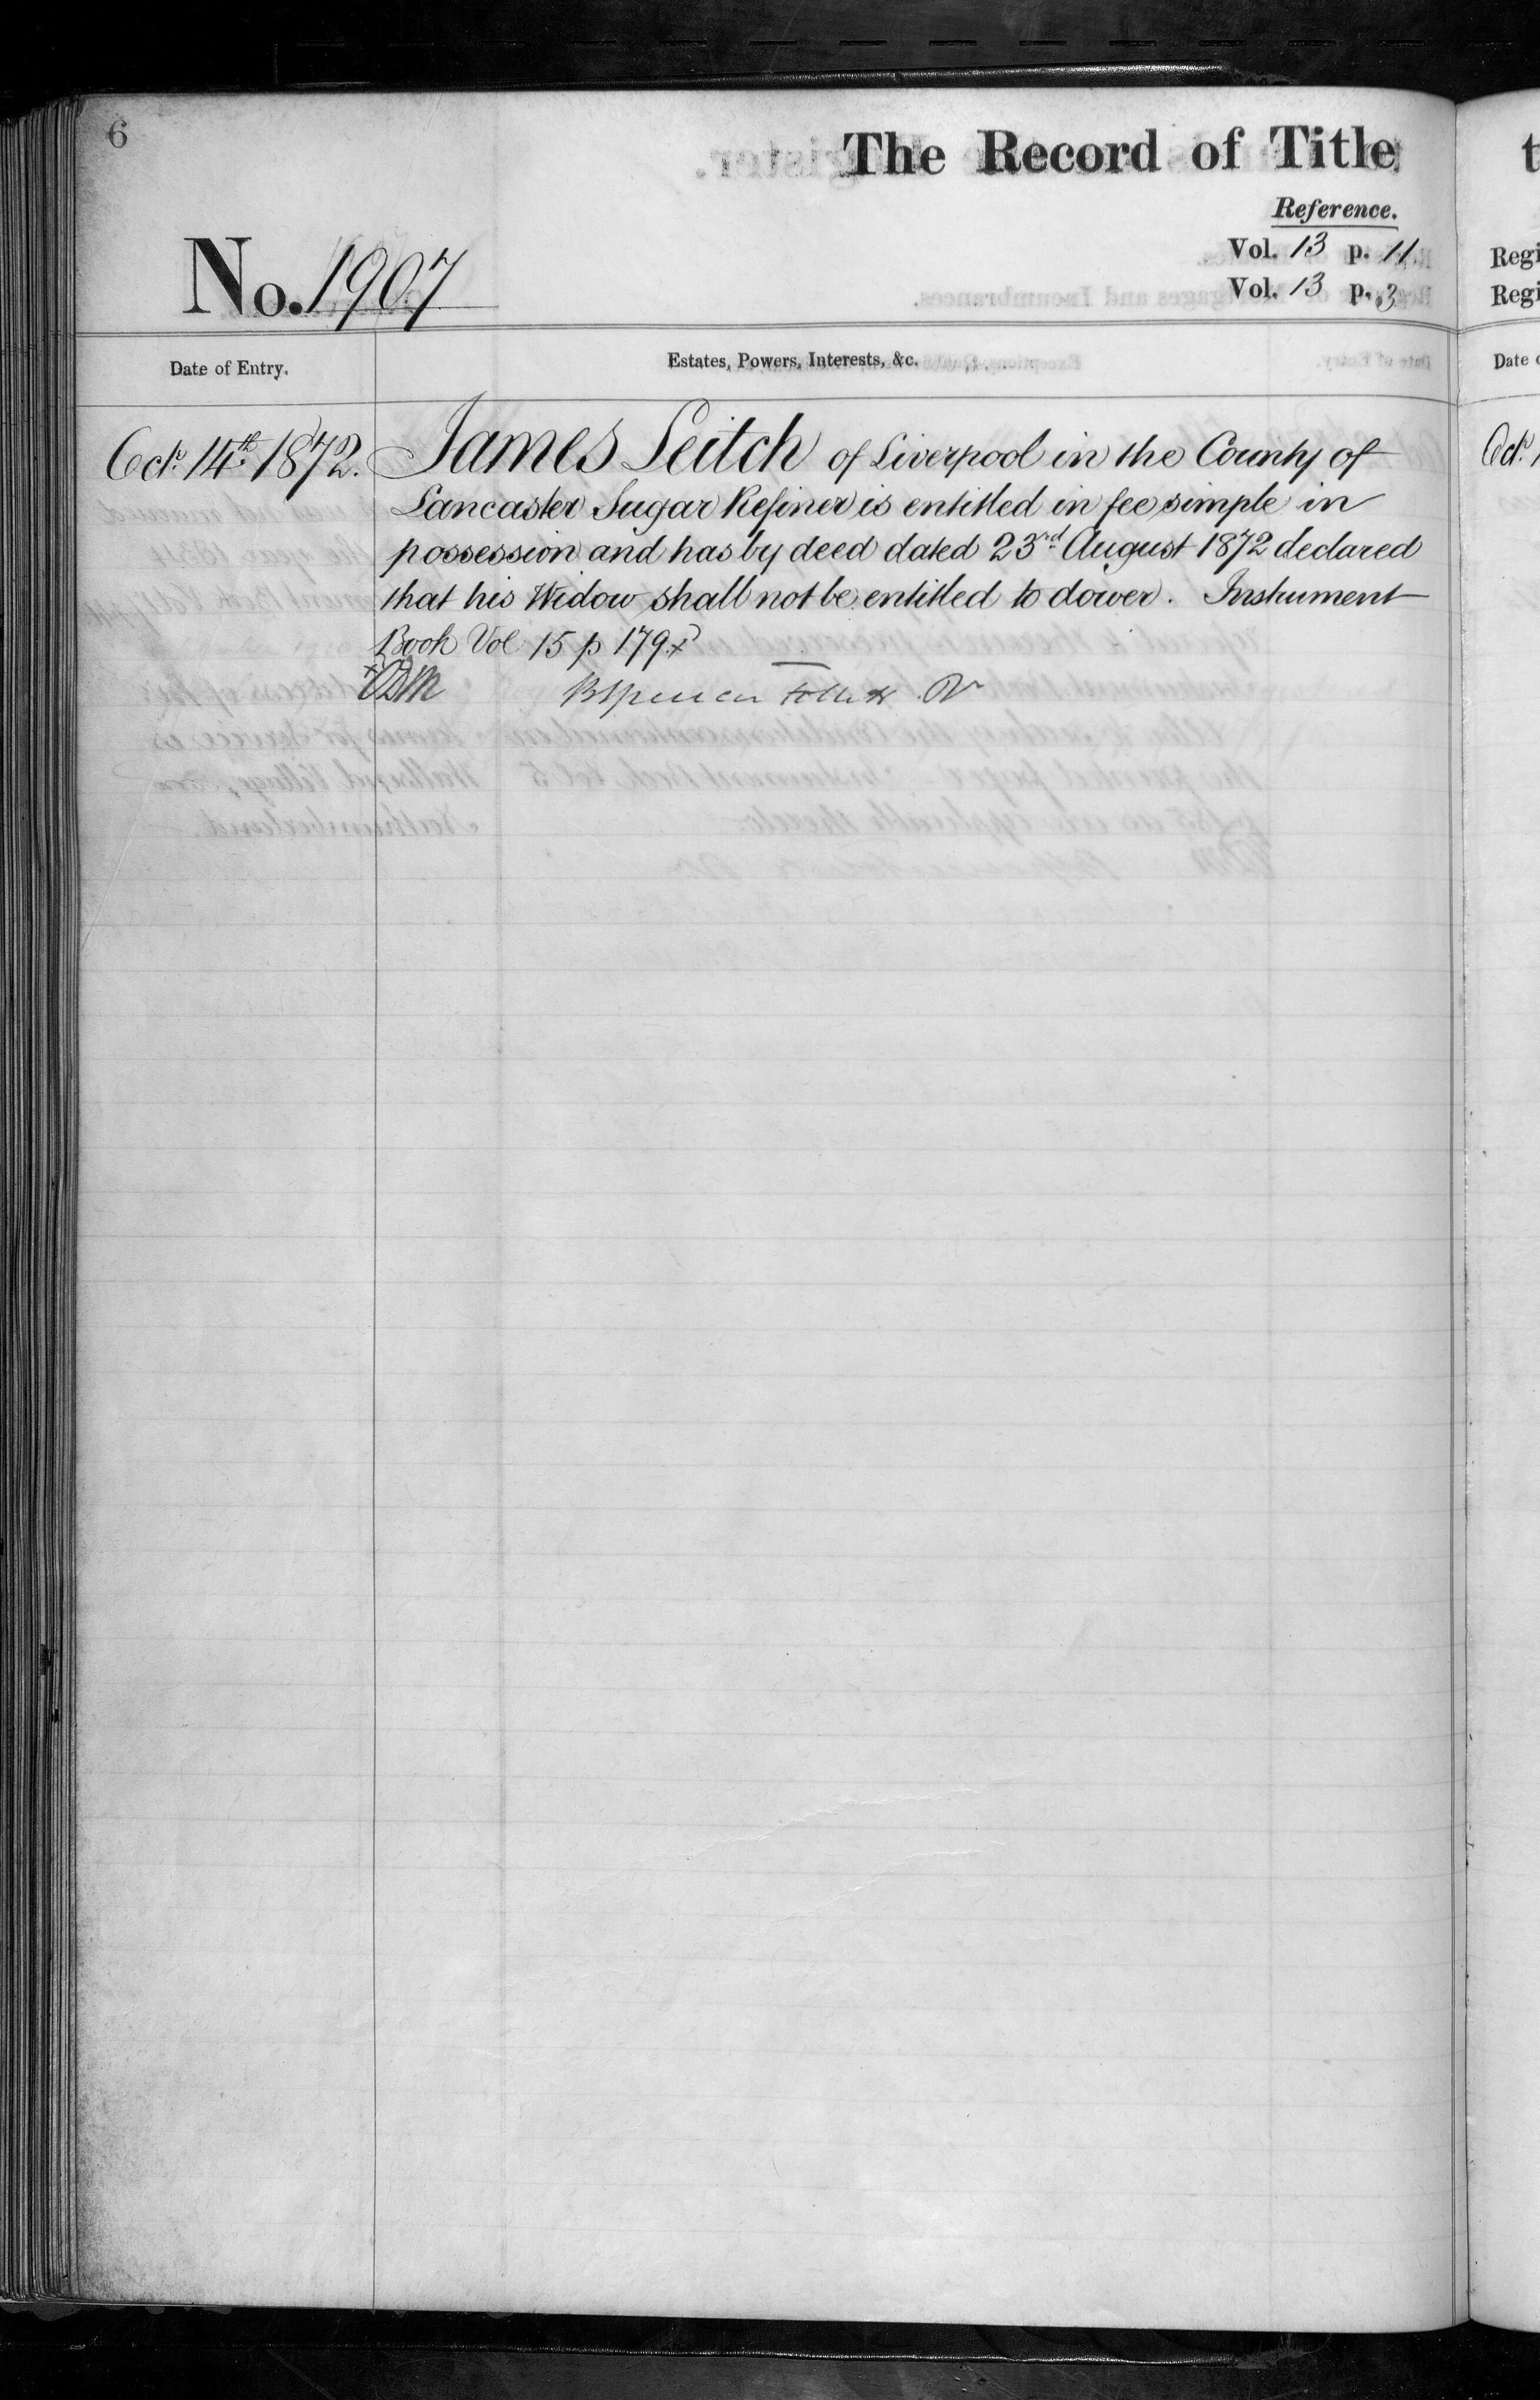 6
The Record of Title
Reference.
Vol. 13 p. 11.
Vol. 13 p. 3
No. 1907
Date of Entry.
Estates, Powers, Interests, &c.
Octr. 14th 1872.
James Leitch of Liverpool in the County of
Lancaster Sugar Refiner is entitled in fee simple in
possession and has by deed dated 23rd August 1872 declared
that his Widow shall not be entitled to dower. Instrument
Book Vol 15 p 179 x
BSpencer Follett
t
Regi
Regi
Date
Octr.